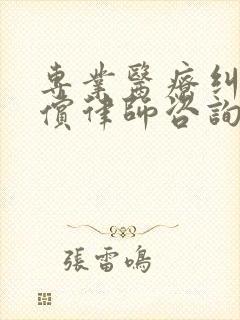 專業醫療糾
償律師咨詢
張雷鳴